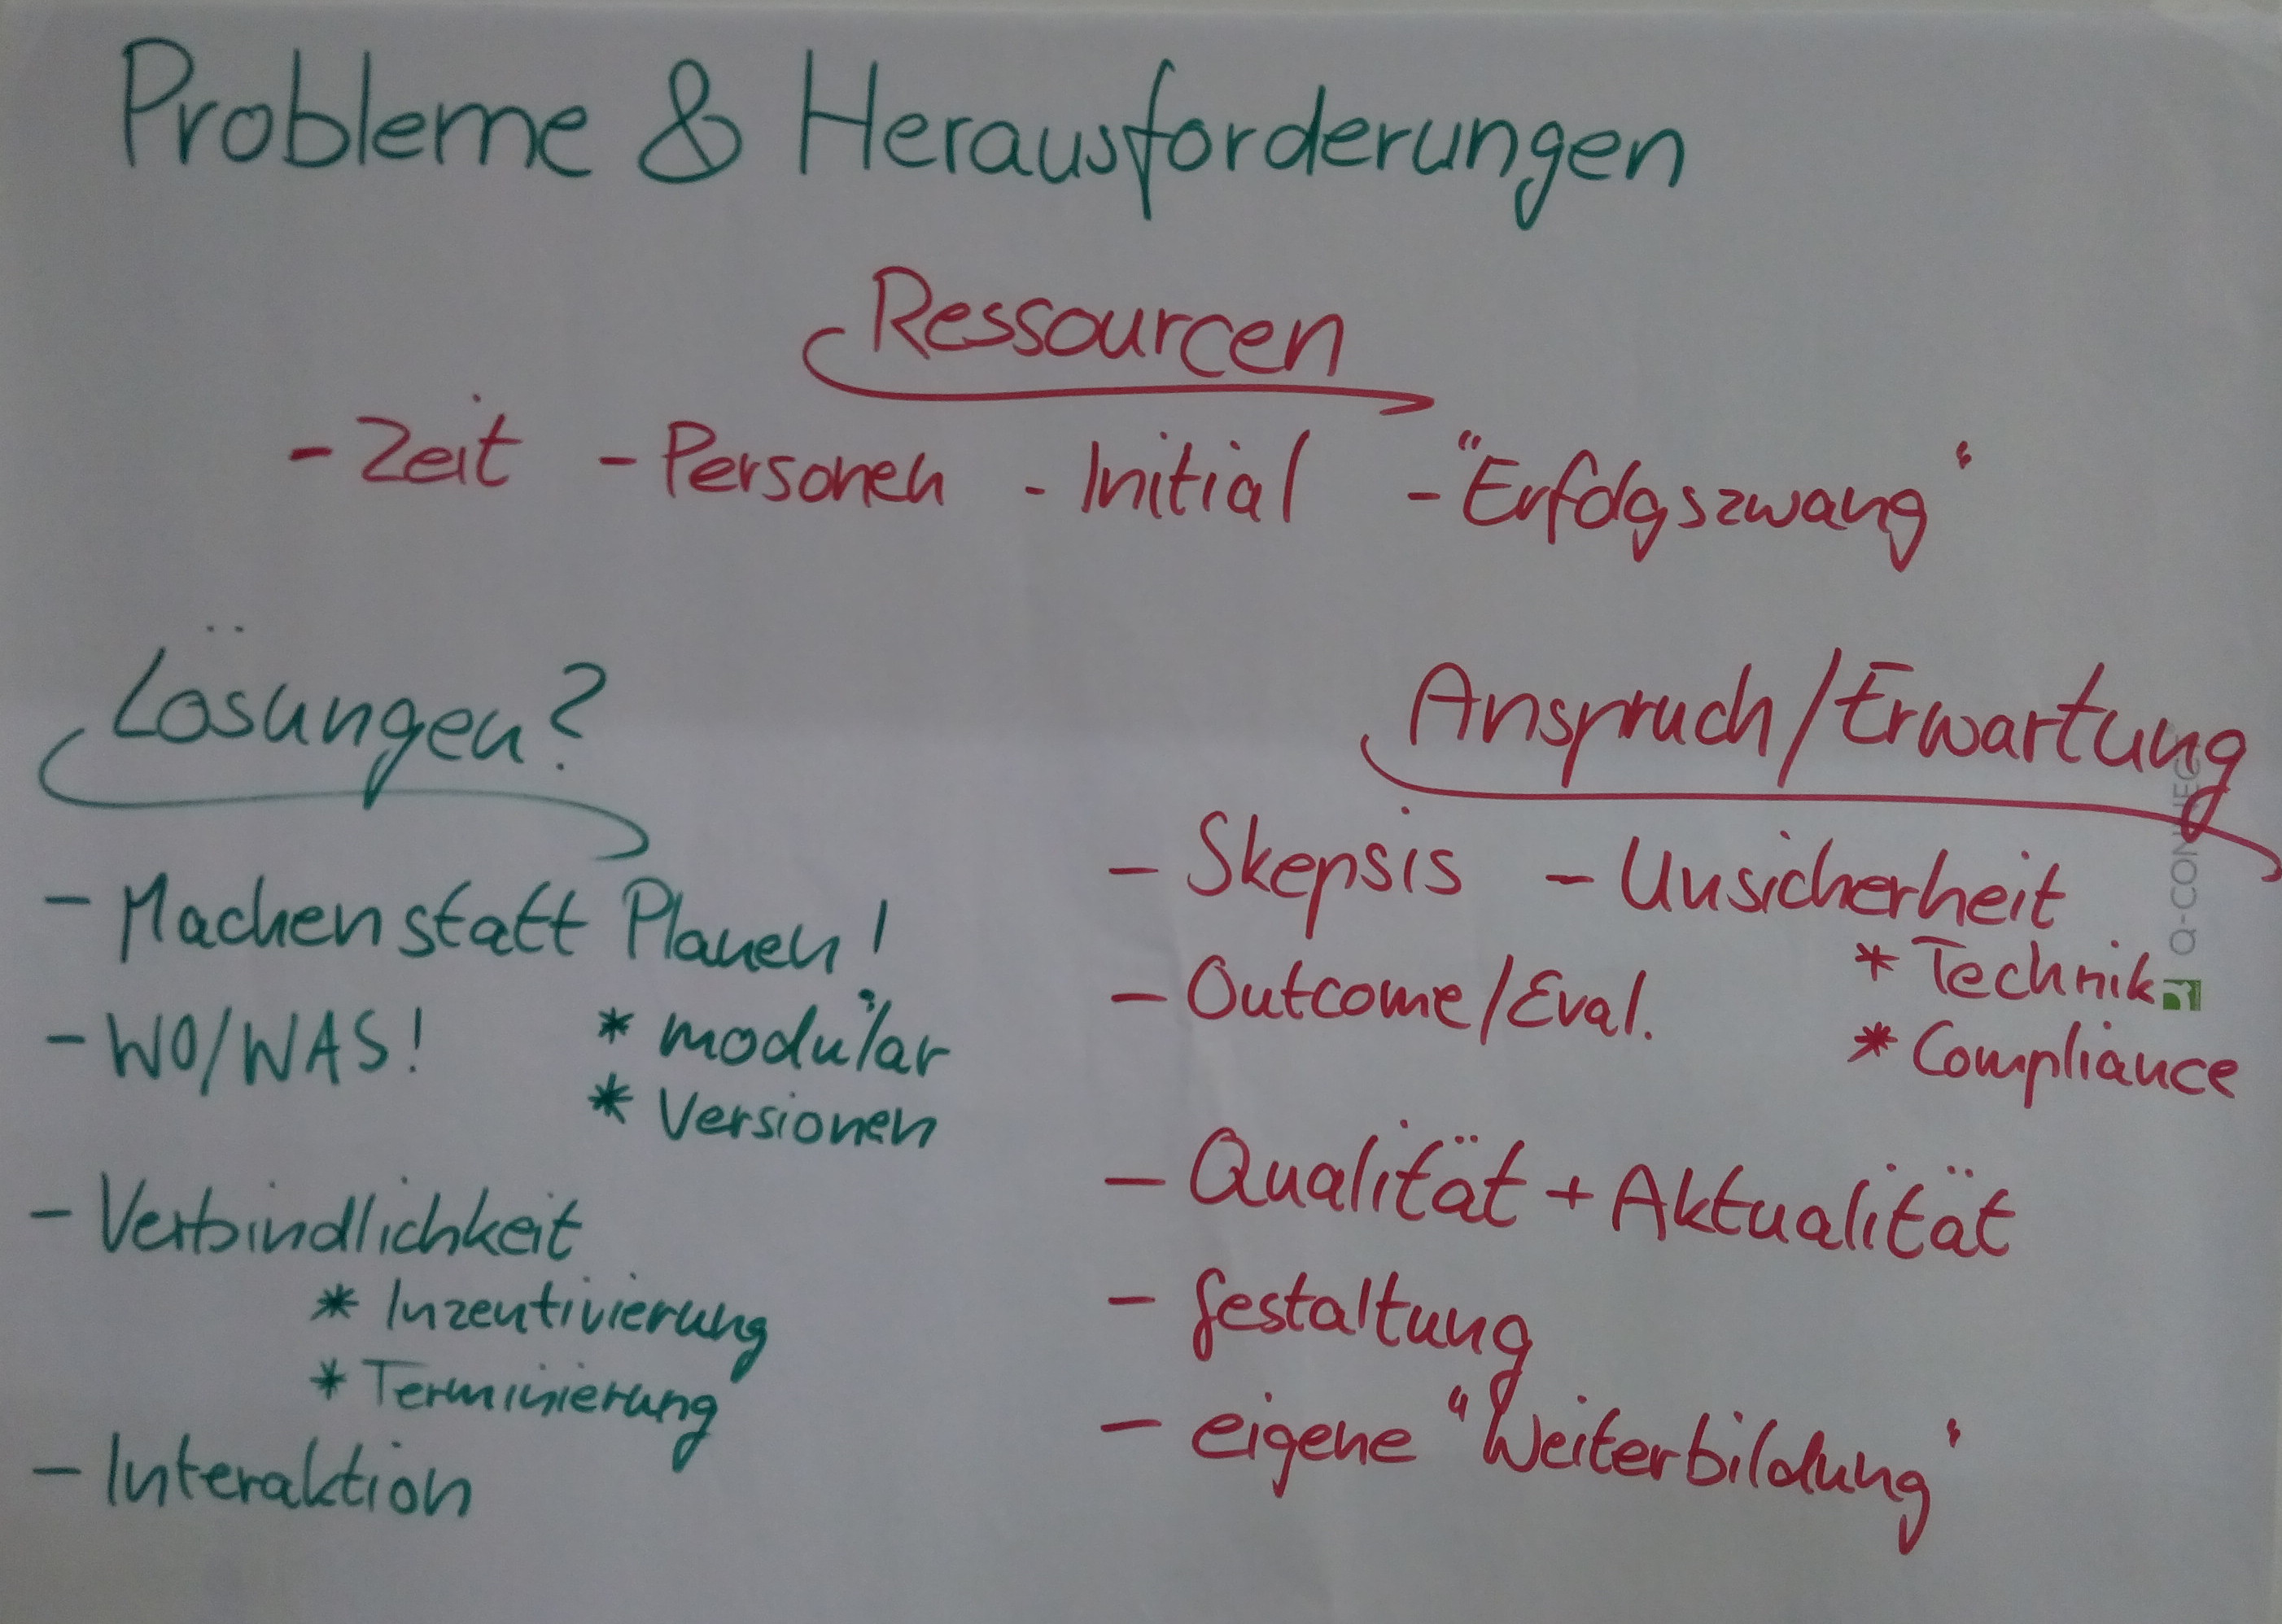 Probleme & Herausforderungen
Ressourcen
- Zeit - Personen - Initial - "Erfolgszwang"
Lösungen?
- Machen statt Planen!
- WO/WAS!
* modular
* Versionen
- Verbindlichkeit
* Inzentivierung
* Terminierung
- Interaktion
Anspruch/Erwartung
- Skepsis - Unsicherheit
* Technik
* Compliance
- Outcome/Eval.
- Qualität + Aktualität
- Gestaltung
- eigene "Weiterbildung"
Q-CONNECT